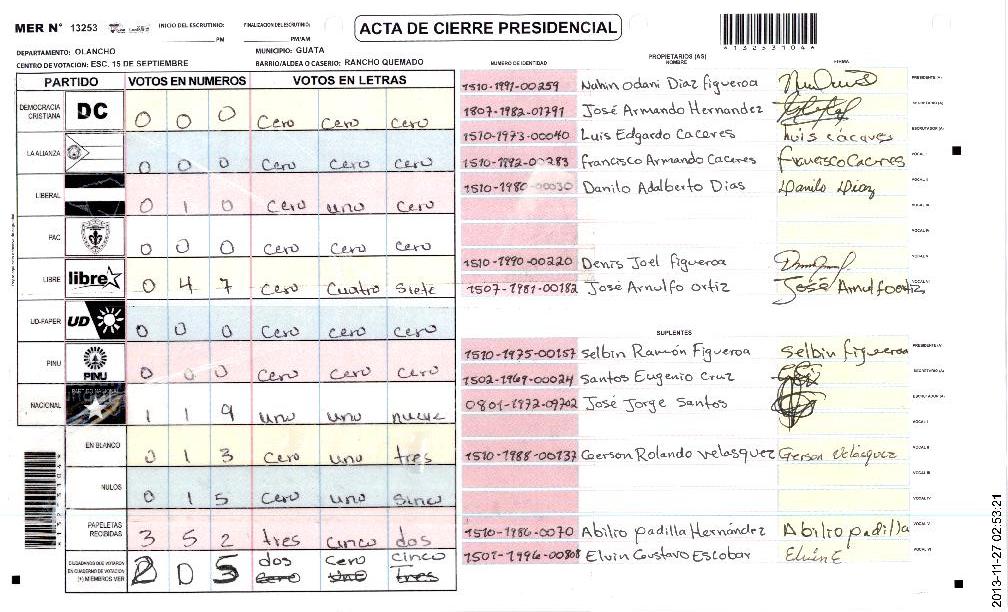 MER N° 13253
INICIO DEL ESCRUTINIO: PM
FINALIZACION DEL ESCRUTINIO: PM/AM
ACTA DE CIERRE PRESIDENCIAL
13253104
DEPARTAMENTO: OLANCHO
MUNICIPIO: GUATA
CENTRO DE VOTACION: ESC. 15 DE SEPTIEMBRE
BARRIO/ALDEA O CASERIO: RANCHO QUEMADO
PARTIDO VOTOS EN NUMEROS VOTOS EN LETRAS
DEMOCRACIA CRISTIANA DC 0 0 0 Cero Cero Cero
LA ALIANZA 0 0 0 Cero Cero Cero
LIBERAL 0 1 0 Cero uno Cero
PAC 0 0 0 Cero Cero Cero
LIBRE libre 0 4 7 Cero Cuatro Siete
UD-FAPER UD 0 0 0 Cero Cero Cero
PINU PINU 0 0 0 Cero Cero Cero
NACIONAL PARTIDO NACIONAL 1 1 9 uno uno nueve
EN BLANCO 0 1 3 Cero uno tres
NULOS 0 1 5 Cero uno Sinco
PAPELETAS RECIBIDAS 3 5 2 tres cinco dos
CIUDADANOS QUE VOTARON EN CUADERNO DE VOTACION (+) MIEMBROS MER 2 0 5 dos cero cinco
cero uno tres
NUMERO DE IDENTIDAD
PROPIETARIOS (AS)
NOMBRE
FIRMA
1510-1991-00259 Nahin Odani Diaz figueroa PRESIDENTE (A)
1807-1982-01791 José Armando Hernandez SECRETARIO (A)
1510-1973-00040 Luis Edgardo Caceres Luis cáceres ESCRUTADOR (A)
1510-1992-00283 francisco Armando Caceres francisco Caceres VOCAL I
1510-1980-00030 Danilo Adalberto Dias Danilo Diaz VOCAL II
VOCAL III
VOCAL IV
1510-1990-00220 Denis Joel figueroa VOCAL V
1507-1981-00182 José Arnulfo Ortiz José Arnulfo ortiz VOCAL VI
SUPLENTES
1510-1975-00157 Selbin Ramón Figueroa Selbin figueroa PRESIDENTE (A)
1502-1967-00024 Santos Eugenio Cruz SECRETARIO (A)
0801-1972-09702 José Jorge Santos ESCRUTADOR (A)
VOCAL I
1510-1988-00137 Gerson Rolando velasquez Gerson Velásquez VOCAL II
VOCAL III
VOCAL IV
1510-1986-0070 Abilio padilla Hernández Abilio padilla VOCAL V
1501-1996-00808 Elvin Gustavo Escobar Elvin E VOCAL VI
2013-11-27 02:53:21